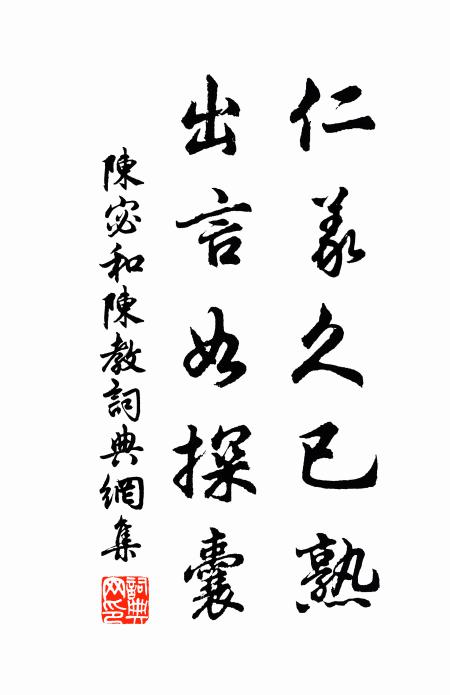 仁義久已熟
出言如探囊
陳宓和陳教詞典網集
詞典網印